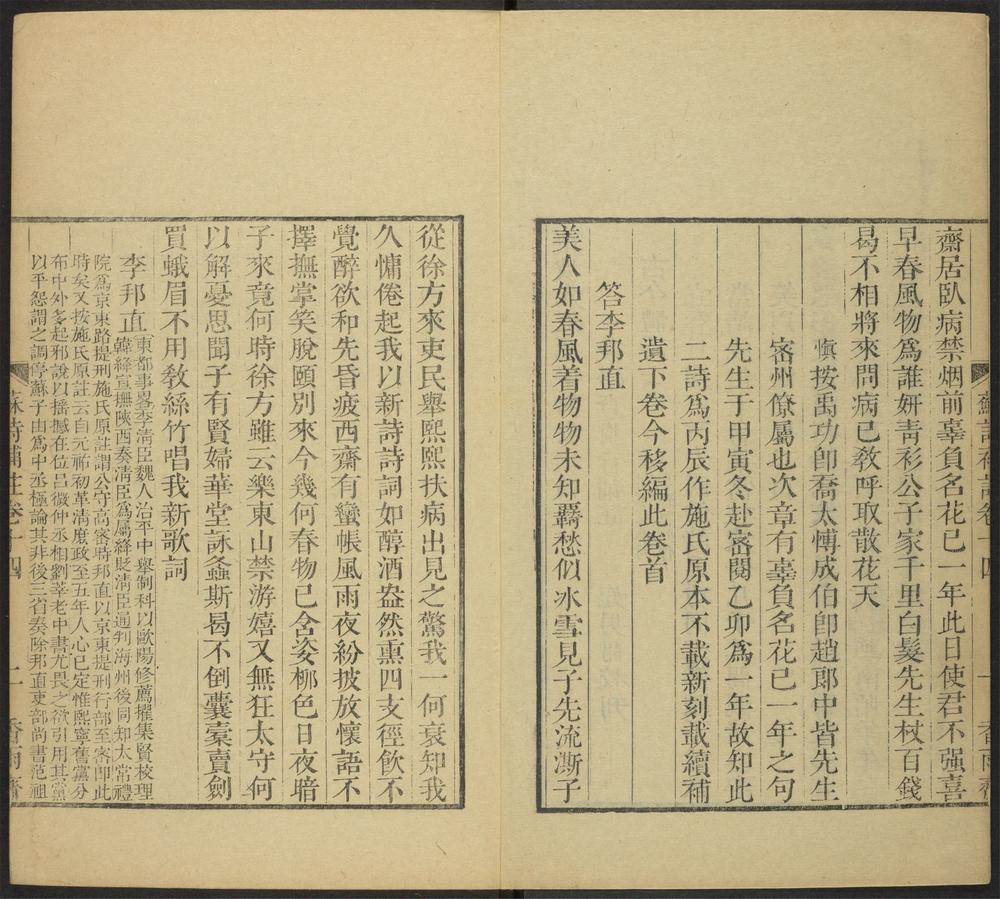 蘇詩補註卷十四
一
香雨齋
齋居臥病禁烟前辜負名花已一年此日使君不强喜
早春風物爲誰妍靑衫公子家千里白髮先生杖百錢
曷不相將來問病已敎呼取散花天
愼按禹功卽喬太愽成伯卽趙郎中皆先生
密州僚屬也次章有辜負名花已一年之句
先生于甲寅冬赴密閱乙卯爲一年故知此
二詩爲丙辰作施氏原本不載新刻載續補
遺下卷今移編此卷首
答李邦直
美人如春風着物物未知羇愁似冰雪見子先流澌子
從徐方來吏民舉熙熙扶病出見之驚我一何衰知我
久慵倦起我以新詩詩詞如醇酒盎然熏四支徑飲不
覺醉欲和先昏疲西齋有蠻帳風雨夜紛披放懷語不
擇撫掌笑脫頤別來今幾何春物已含姿柳色日夜暗
子來竟何時徐方雖云樂東山禁游嬉又無狂太守何
以解憂思聞子有賢婦華堂詠螽斯曷不倒囊橐賣劍
買蛾眉不用敎絲竹唱我新歌詞
李邦直
東都事畧李淸臣魏人治平中舉制科以歐陽修薦擢集賢校理
韓絳宣撫陝西奏淸臣爲屬絳貶淸臣通判海州後同知太常禮
院爲京東路提刑施氏原註謂公守高密時邦直以京東提刑行部至密卽此
時矣又按施氏原註云自元祐初革淸度政至五年人心已定惟熙寧舊黨分
布中外多起邪說以搖撼在位呂微仲丞相劉莘老中書尤畏之欲引用其黨
以平怨謂之調停蘇子由爲中丞極論其非後三省奏除邦直吏部尚書范祖
蘇詩補註卷十四
二
香雨齋